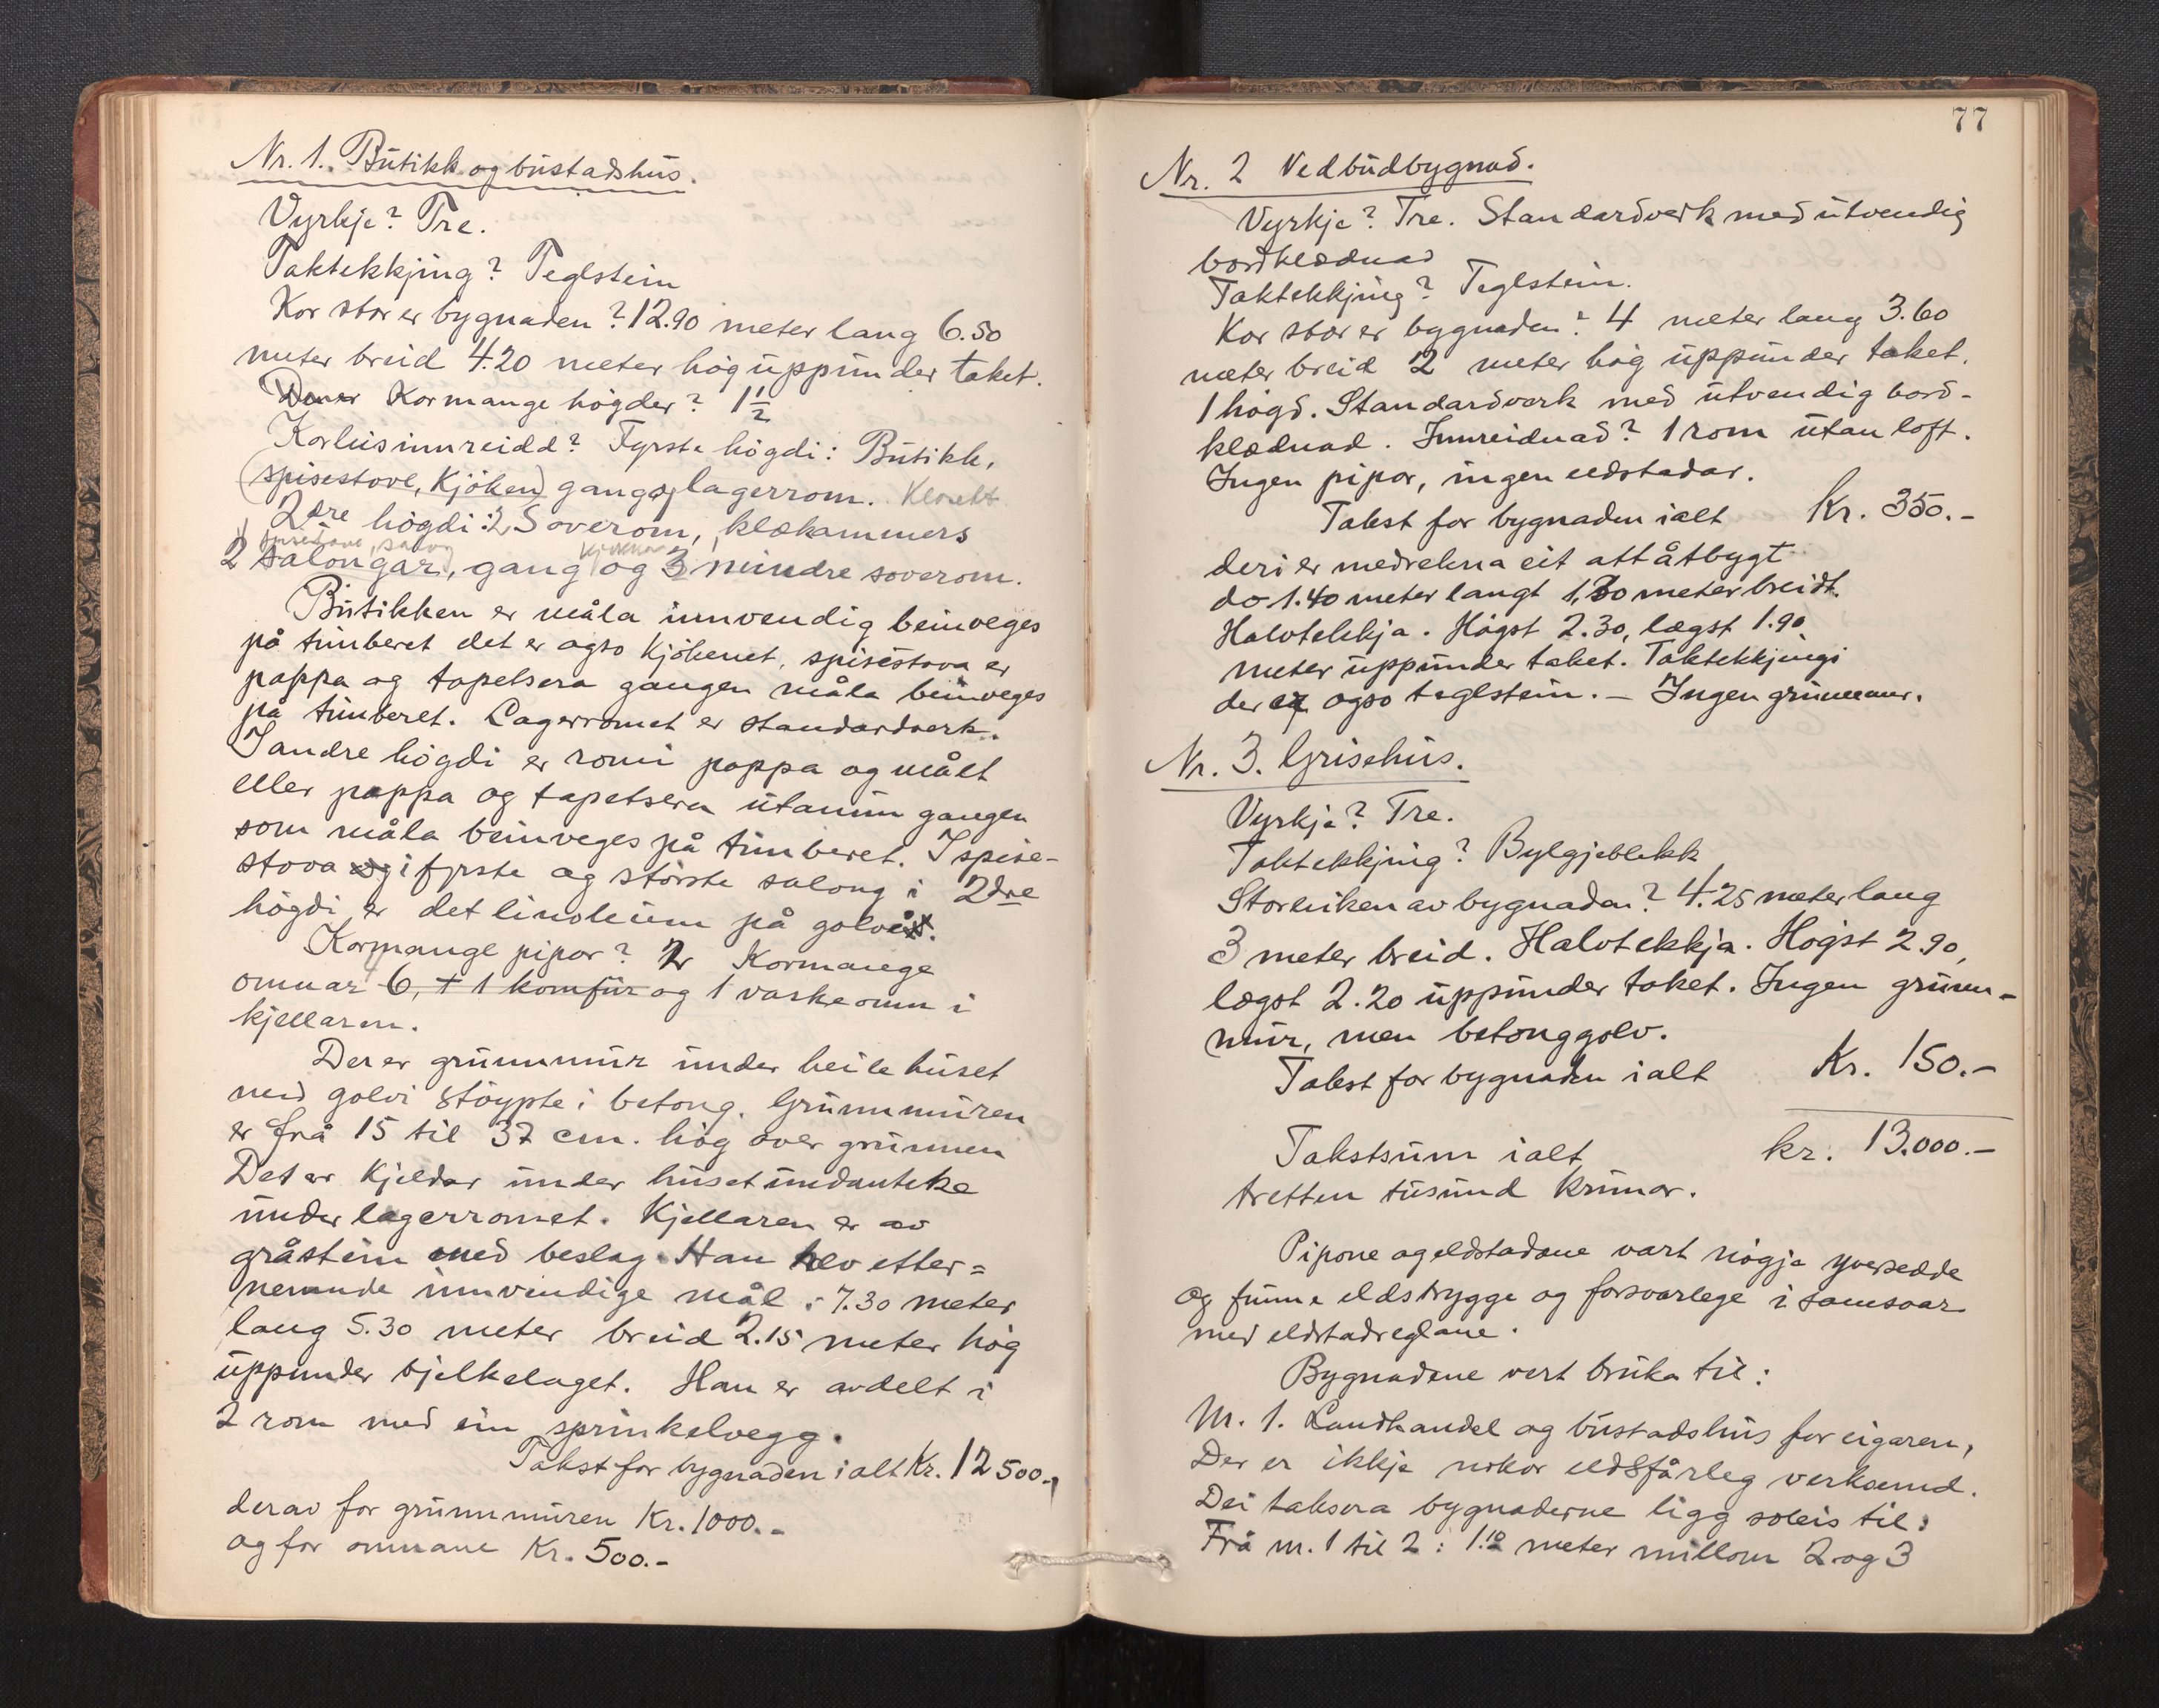 Nr. 1. Butikk og bustadshus.
Vyrkje? Tre.
Taktekkjing? Teglstein
Kor stor er bygnaden? 12.90 meter lang 6.50
meter breid 4.20 meter høg uppunder taket.
Kormange høgder? 1 1/2
Korleis innreidd? Fyrste høgdi: Butikk,
(spisestove, kjøken) gang og lagerrom. Klosett
2dre høgdi: 2 Soverom, klækammers
spisestove, salong kjøkken
2 salongar, gang og 3 mindre soverom.
Butikken er måla innvendig beinveges
på timberet det er ogso kjøkenet, spisestova er
pappa og tapetsera gangen måla beinveges
på timberet. Lagerromet er standardverk.
I andre høgdi er romi pappa og målt
eller pappa og tapetsera utanum gangen
som måla beinveges på timberet. I spise-
stova og i fyrste og største salong i 2dre
høgdi er det linoleum på golvet.
Kormange pipor? 2 Kormange
omnar 6, + 1 komfur og 1 vaskeomn i
kjellaren.
Der er grunnmur under heile huset
med golvi støypte i betong. Grunnmuren
er frå 15 til 37 cm. høg over grunnen
Det er kjeldar under huset undanteke
under lagerromet. Kjellaren er av
gråstein med beslag. Han hev etter=
nemnde innvendige mål: 7.30 meter
lang 5.30 meter breid 2.15 meter høg
uppunder bjelkelaget. Han er avdelt i
2 rom med ein sprinkelvegg.
Takst for bygnaden i alt Kr. 12 500.-
derav for grunnmuren Kr. 1000.-
og for omnane Kr. 500.-
77
Nr. 2 Vedbudbygnad.
Vyrkje? Tre. Standardverk med utvendig
bordklædnad
Taktekkjing? Teglstein.
Kor stor er bygnaden? 4 meter lang 3.60
meter breid 2 meter høg uppunder taket.
1 høgd. Standardverk med utvendig bord-
klædnad. Innreidnad? 1 rom utan loft.
Ingen pipor, ingen eldstadar.
Takst for bygnaden ialt Kr. 350.-
deri er medrekna eit attåtbygt
do 1.40 meter langt 1,30 meter breidt.
Halvtekkja. Høgst 2.30, lægst 1.90
meter uppunder taket. Taktekkjingi
der er ogso teglstein. – Ingen grunnmur.
Nr. 3. Grisehus.
Vyrkje? Tre.
Taktekkjing? Bylgjeblekk
Storleiken av bygnaden? 4.25 meter lang
3 meter breid. Halvtekkja. Høgst 2.90,
lægst 2.20 uppunder taket. Ingen grunn-
mur, men betonggolv.
Takst for bygnaden ialt Kr. 150.-
Takstsum ialt kr. 13.000.-
tretten tusund krunor.
Pipone og eldstadane vart nøgje yversedde
og funne eldstrygge og forsvarlege i samsvar
med eldstadreglane.
Bygnadene vert bruka til:
Nr. 1. Landhandel og bustadshus for eigaren,
Der er ikkje nokor eldsfårleg verksemd.
Dei taksera bygnaderne ligg soleis til:
Frå nr. 1 til 2: 1.10 meter millom 2 og 3